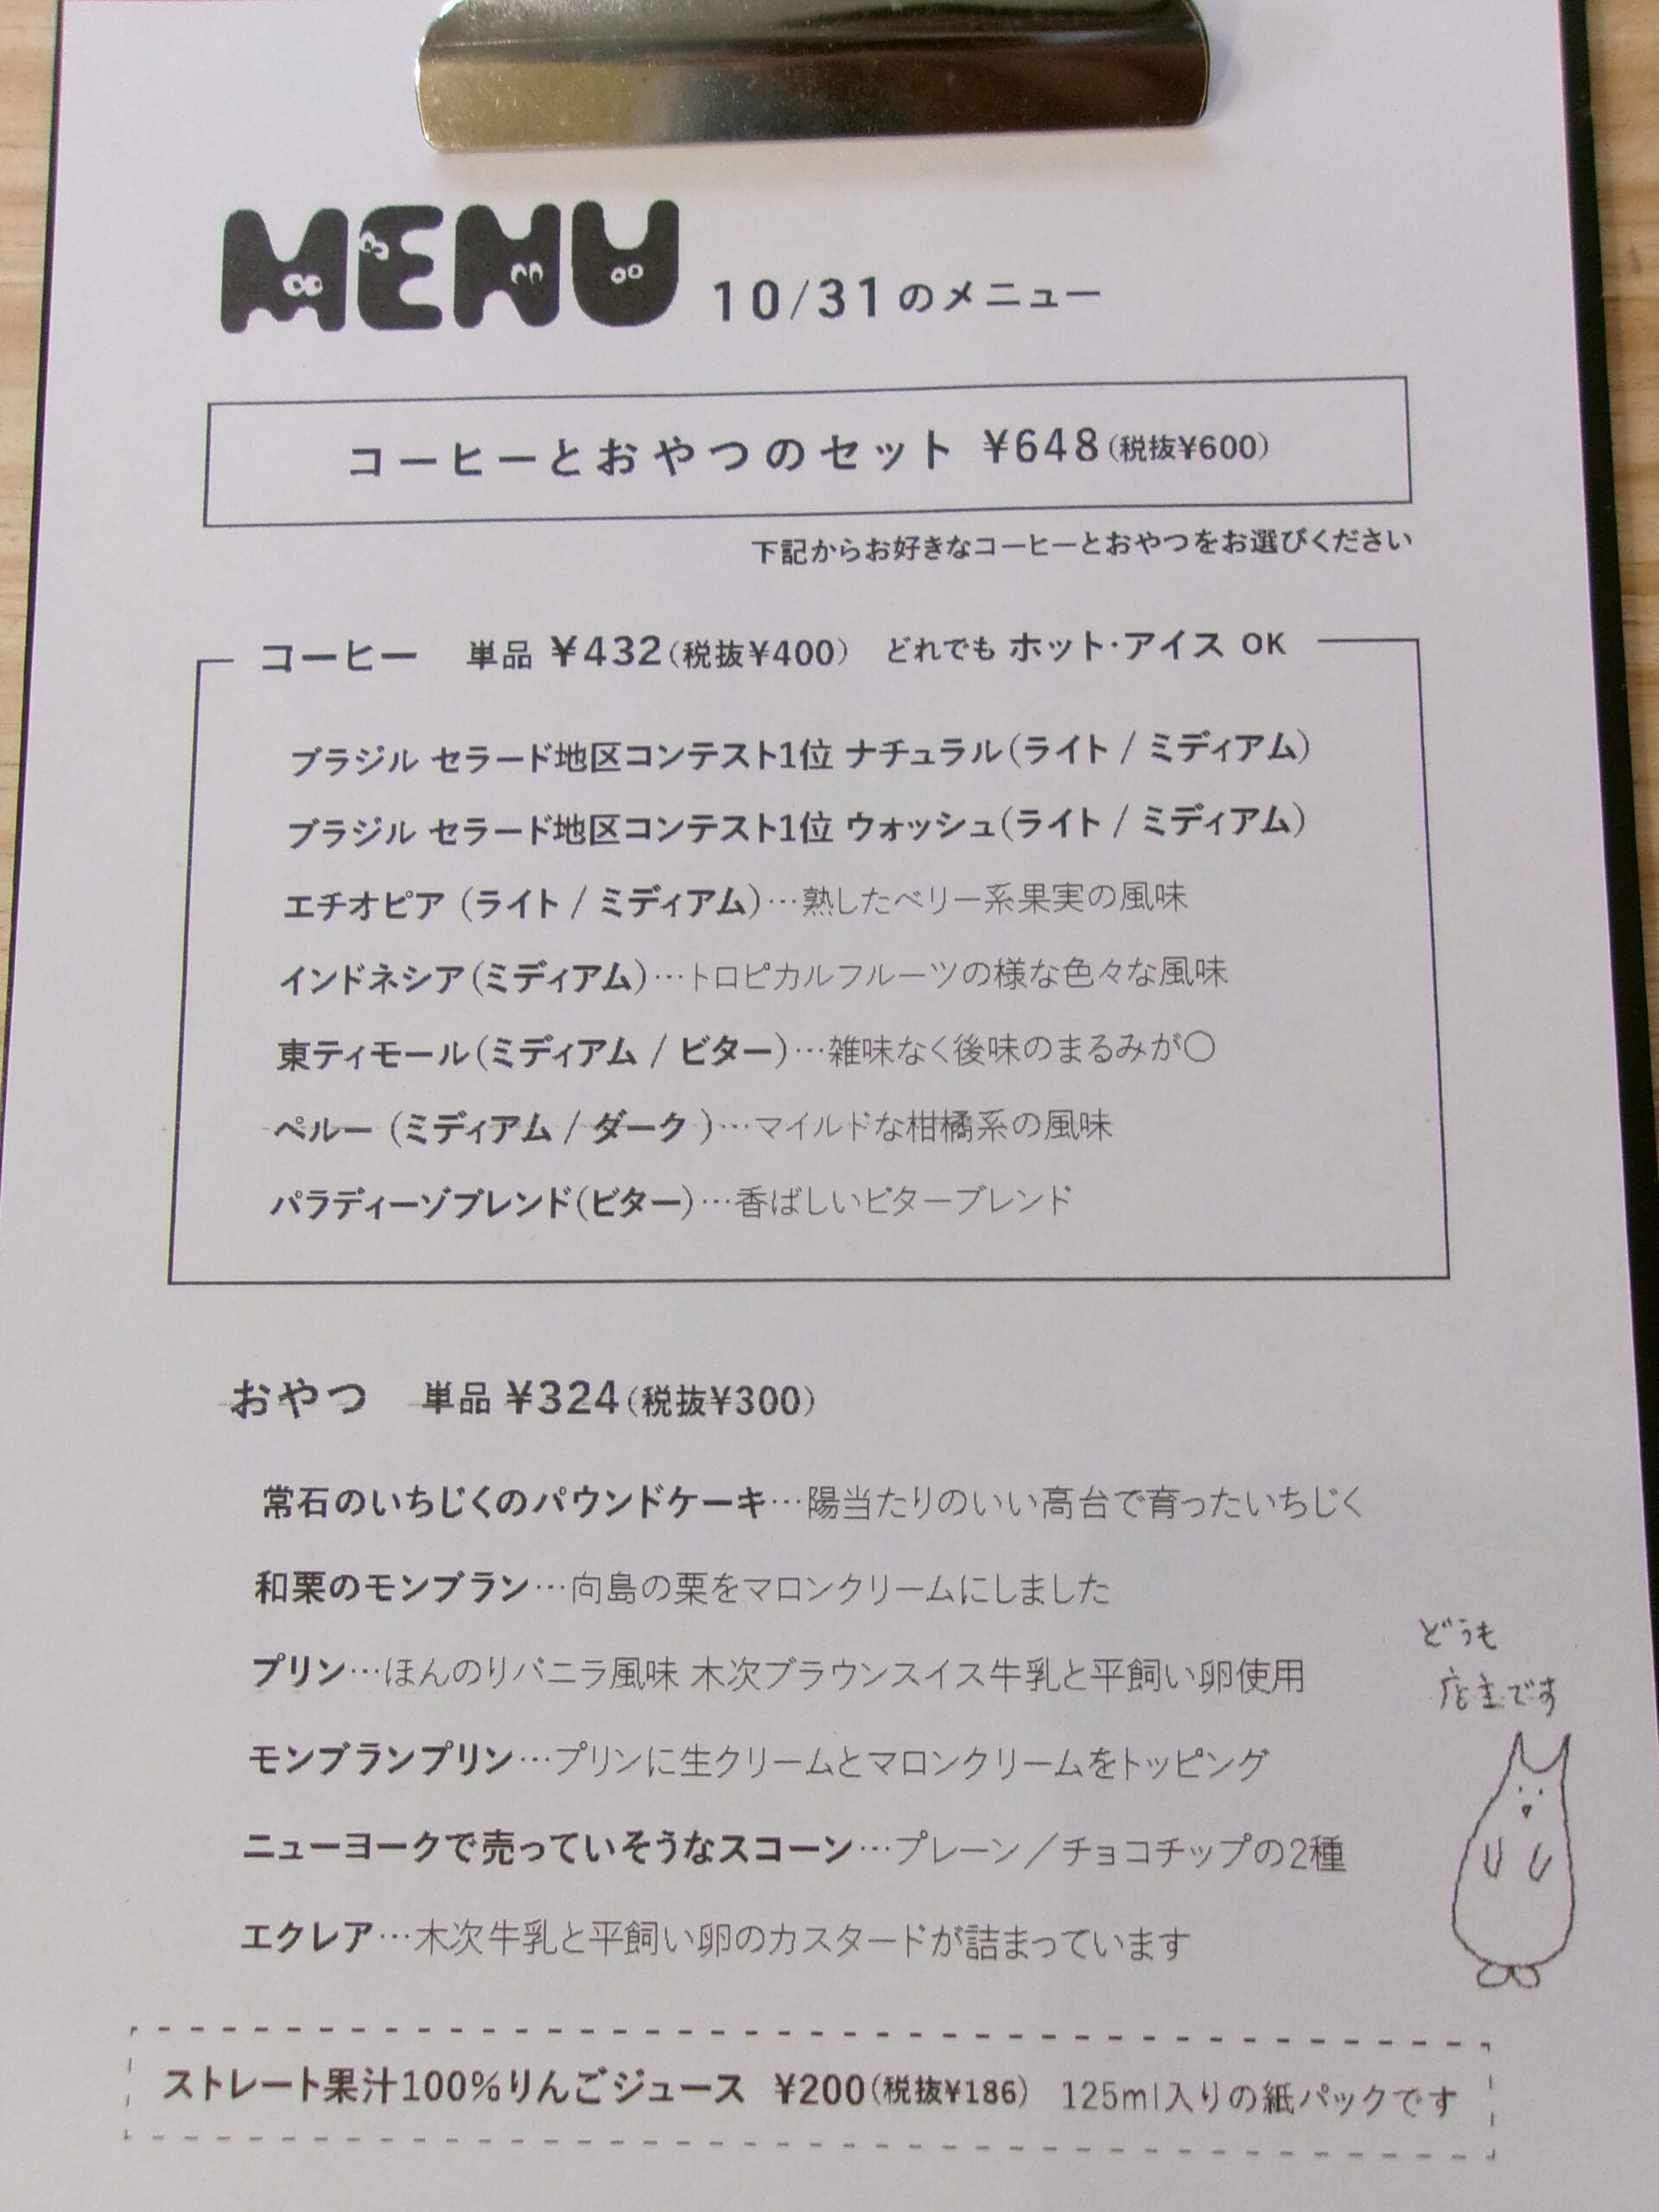 MENU 10/31のメニュー
コーヒーとおやつのセット ¥648(税抜¥600)
下記からお好きなコーヒーとおやつをお選びください
コーヒー 単品 ¥432(税抜¥400) どれでも ホット・アイス OK
ブラジル セラード地区コンテスト1位 ナチュラル(ライト / ミディアム)
ブラジル セラード地区コンテスト1位 ウォッシュ(ライト / ミディアム)
エチオピア (ライト / ミディアム)…熟したベリー系果実の風味
インドネシア(ミディアム)…トロピカルフルーツの様な色々な風味
東ティモール(ミディアム / ビター)…雑味なく後味のまるみが○
ペルー (ミディアム / ダーク )…マイルドな柑橘系の風味
パラディーゾブレンド(ビター)…香ばしいビターブレンド
おやつ 単品 ¥324(税抜¥300)
常石のいちじくのパウンドケーキ…陽当たりのいい高台で育ったいちじく
和栗のモンブラン…向島の栗をマロンクリームにしました
プリン…ほんのりバニラ風味 木次ブラウンスイス牛乳と平飼い卵使用
モンブランプリン…プリンに生クリームとマロンクリームをトッピング
ニューヨークで売っていそうなスコーン…プレーン／チョコチップの2種
エクレア…木次牛乳と平飼い卵のカスタードが詰まっています
どうも
店主です
ストレート果汁100%りんごジュース ¥200(税抜¥186) 125ml入りの紙パックです